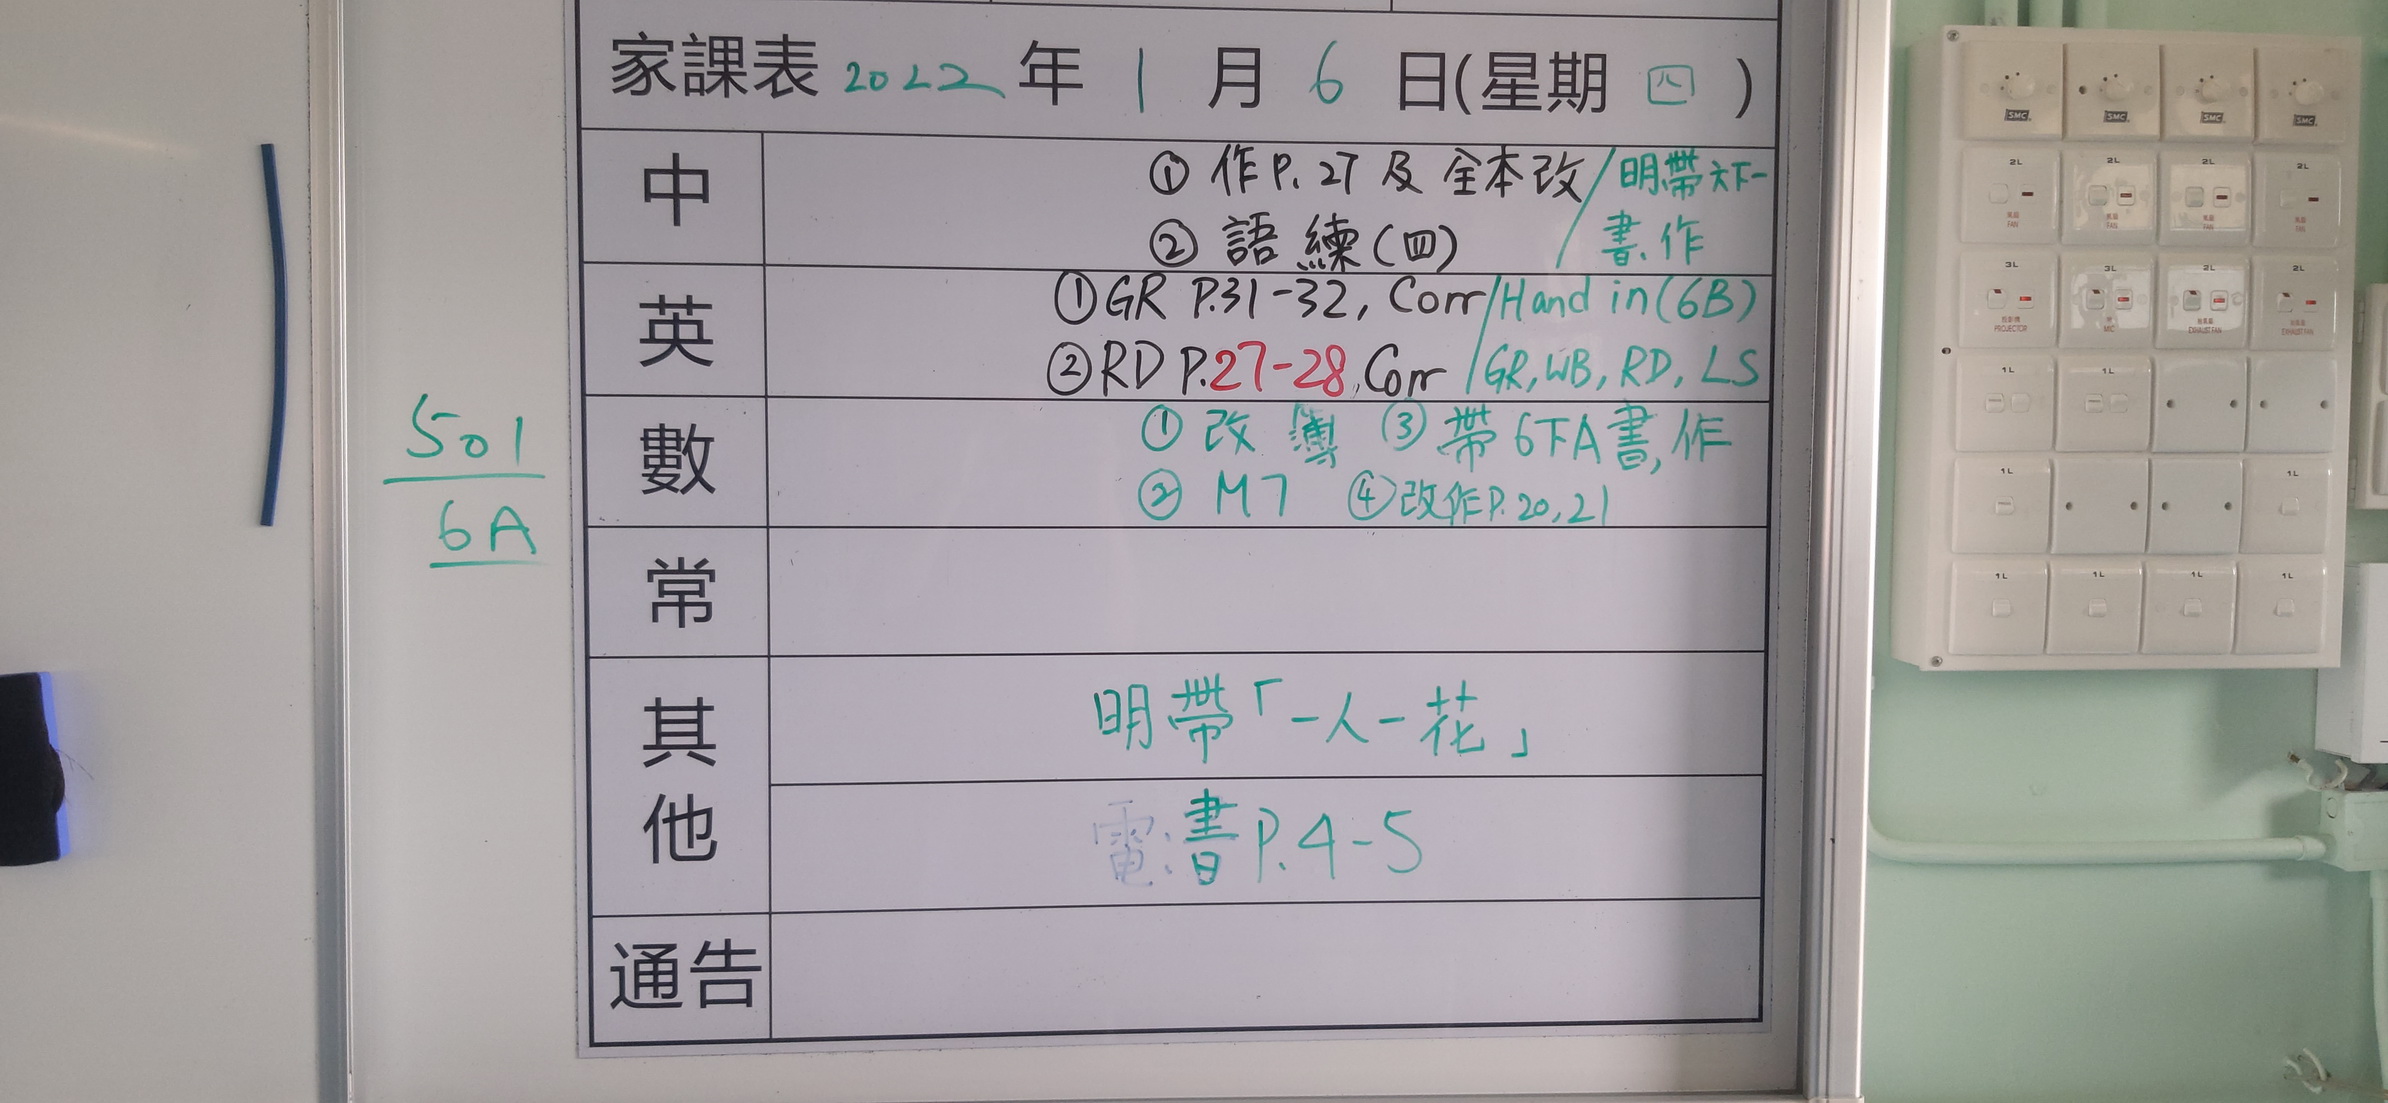 家課表 2022 年 1 月 6 日(星期 四 )
中
① 作 P. 27 及 全本改 / 明帶六下一
② 語練(四) / 書.作
英
①GR P.31-32, Corr / Hand in (6B)
②RD P.27-28, Corr / GR, WB, RD, LS
數
① 改簿 ③ 帶6下A書,作
② M7 ④改作P.20,21
常
其他
明帶「一人一花」
電:書P.4-5
通告
501
6A
SMC SMC SMC SMC
2L 2L 2L 2L
風扇 風扇 風扇 風扇
FAN FAN FAN FAN
3L 3L 2L 2L
投影機
PROJECTOR MIC EXHAUST FAN EXHAUST FAN
1L 1L
1L 1L
1L 1L 1L 1L